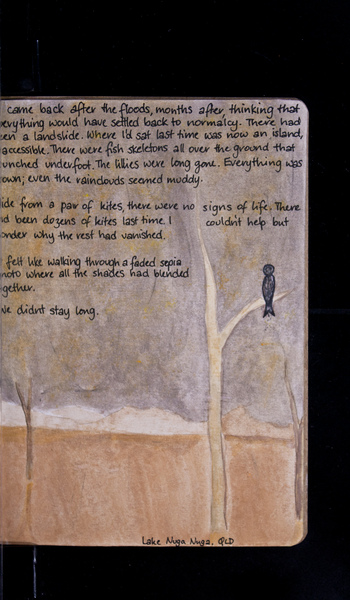 came back after the floods, months after, thinking that
everything would have settled back to normalcy. There had
een a landslide. Where I'd sat last time was now an island,
accessible. There were fish skeletons all over the ground that
unched underfoot. The lillies were long gone. Everything was
own; even the rainclouds seemed muddy.
ide from a pair of kites, there were no signs of life. There
d been dozens of kites last time. I couldn't help but
onder why the rest had vanished.
felt like walking through a faded sepia
hoto where all the shades had blended
gether.
We didnt stay long.
Lake Nuga Nuga, QLD